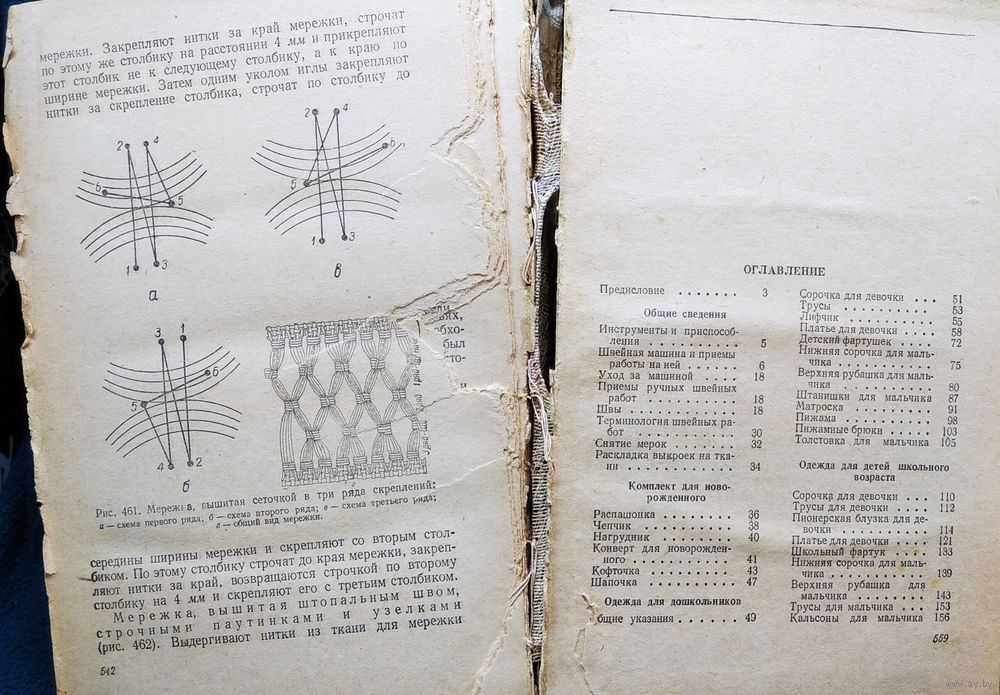 мережки. Закрепляют нитки за край мережки, строчат
по этому же столбику на расстоянии 4 мм и прикрепляют
этот столбик не к следующему столбику, а к краю по
ширине мережки. Затем одним уколом иглы закрепляют
нитки за скрепление столбика, строчат по столбику до
2 4
6
5
1 3
а
2 4
6
5
1 3
в
3 1
6
5
4 2
б
ях,
бхо-
был
сто-
и
1 ряд
г
Рис. 461. Мережка, вышитая сеточкой в три ряда скреплений:
а — схема первого ряда; б — схема второго ряда; в — схема третьего ряда;
г — общий вид мережки.
середины ширины мережки и скрепляют со вторым стол-
биком. По этому столбику строчат до края мережки, закреп-
ляют нитки за край, возвращаются строчкой по второму
столбику на 4 мм и скрепляют его с третьим столбиком.
Мережка, вышитая штопальным швом,
строчными паутинками и узелками
(рис. 462). Выдергивают нитки из ткани для мережки
542
ОГЛАВЛЕНИЕ
Предисловие . . . . . . . 3
Общие сведения
Инструменты и приспособ-
ления . . . . . . . . . 5
Швейная машина и приемы
работы на ней . . . . . . 6
Уход за машиной . . . . 18
Приемы ручных швейных
работ . . . . . . . . . 18
Швы . . . . . . . . . . 18
Терминология швейных ра-
бот . . . . . . . . . . 30
Снятие мерок . . . . . . 32
Раскладка выкроек на тка-
ни . . . . . . . . . . 34
Комплект для ново-
рожденного
Распашонка . . . . . . . 36
Чепчик . . . . . . . . . 38
Нагрудник . . . . . . . 40
Конверт для новорожден-
ного . . . . . . . . . 41
Кофточка . . . . . . . . 43
Шапочка . . . . . . . . 47
Одежда для дошкольников
бщие указания . . . . . . 49
Сорочка для девочки . . . 51
Трусы . . . . . . . . . 53
Лифчик . . . . . . . . . 55
Платье для девочки . . . 58
Детский фартушек . . . . 72
Нижняя сорочка для маль-
чика . . . . . . . . . 75
Верхняя рубашка для маль-
чика . . . . . . . . . 80
Штанишки для мальчика 87
Матроска . . . . . . . . 91
Пижама . . . . . . . . . 98
Пижамные брюки . . . . 103
Толстовка для мальчика 105
Одежда для детей школьного
возраста
Сорочка для девочки . . . 110
Трусы для девочки . . . . 112
Пионерская блузка для де-
вочки . . . . . . . . . 114
Платье для девочки . . . 121
Школьный фартук . . . . 133
Нижняя сорочка для маль-
чика . . . . . . . . . 139
Верхняя рубашка для
мальчика . . . . . . . 143
Трусы для мальчика . . . 153
Кальсоны для мальчика 156
559
www.ay.by